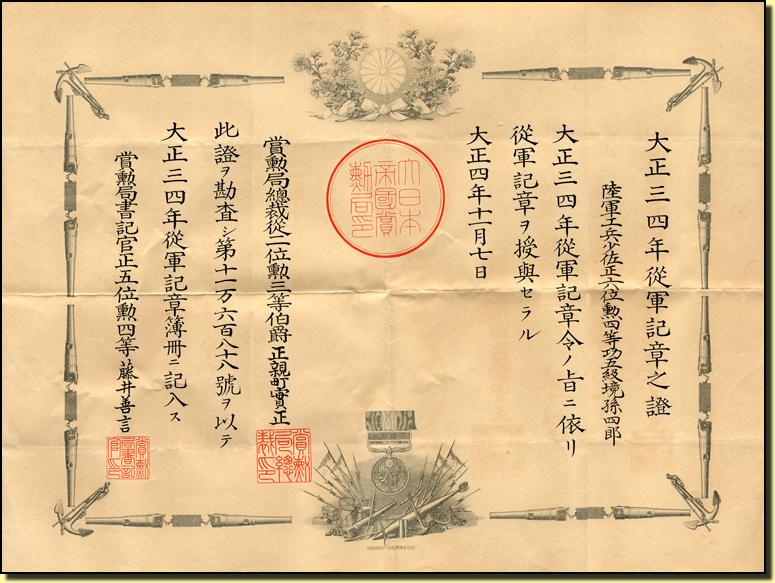 大正三四年從軍記章之證
陸軍工兵少佐正六位勲四等功五級境孫四郎
大正三四年從軍記章令ノ旨ニ依リ
從軍記章ヲ授與セラル
大正四年十一月七日
大日本
帝國賞
勲局印
賞勲局總裁從二位勲三等伯爵正親町實正
賞勲
局總
裁印
此證ヲ勘査シ第十一万六百八十八號ヲ以テ
大正三四年從軍記章簿册ニ記入ス
賞勲局書記官正五位勲四等藤井善言
賞勲
局書記
官印